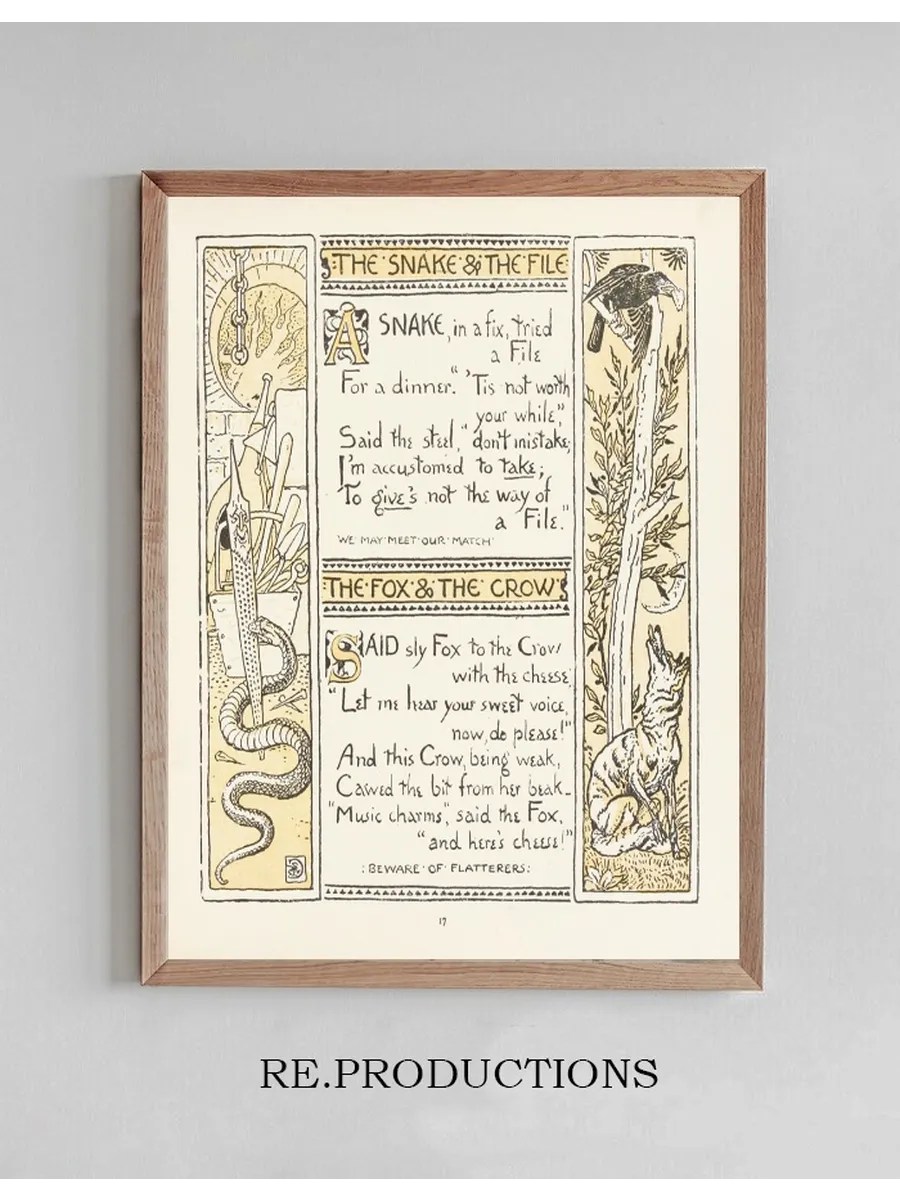 THE·SNAKE·&·THE·FILE
A SNAKE, in a fix, tried
a File
For a dinner. "'Tis not worth
your while",
Said the steel, "don't mistake;
I'm accustomed to take;
To give's not the way of
a File."
WE·MAY·MEET·OUR·MATCH·
THE·FOX·&·THE·CROW
SAID sly Fox to the Crow
with the cheese,
"Let me hear your sweet voice,
now, do please!"
And this Crow, being weak,
Cawed the bit from her beak_
"Music charms", said the Fox,
"and here's cheese!"
:BEWARE·OF·FLATTERERS:
17
RE.PRODUCTIONS